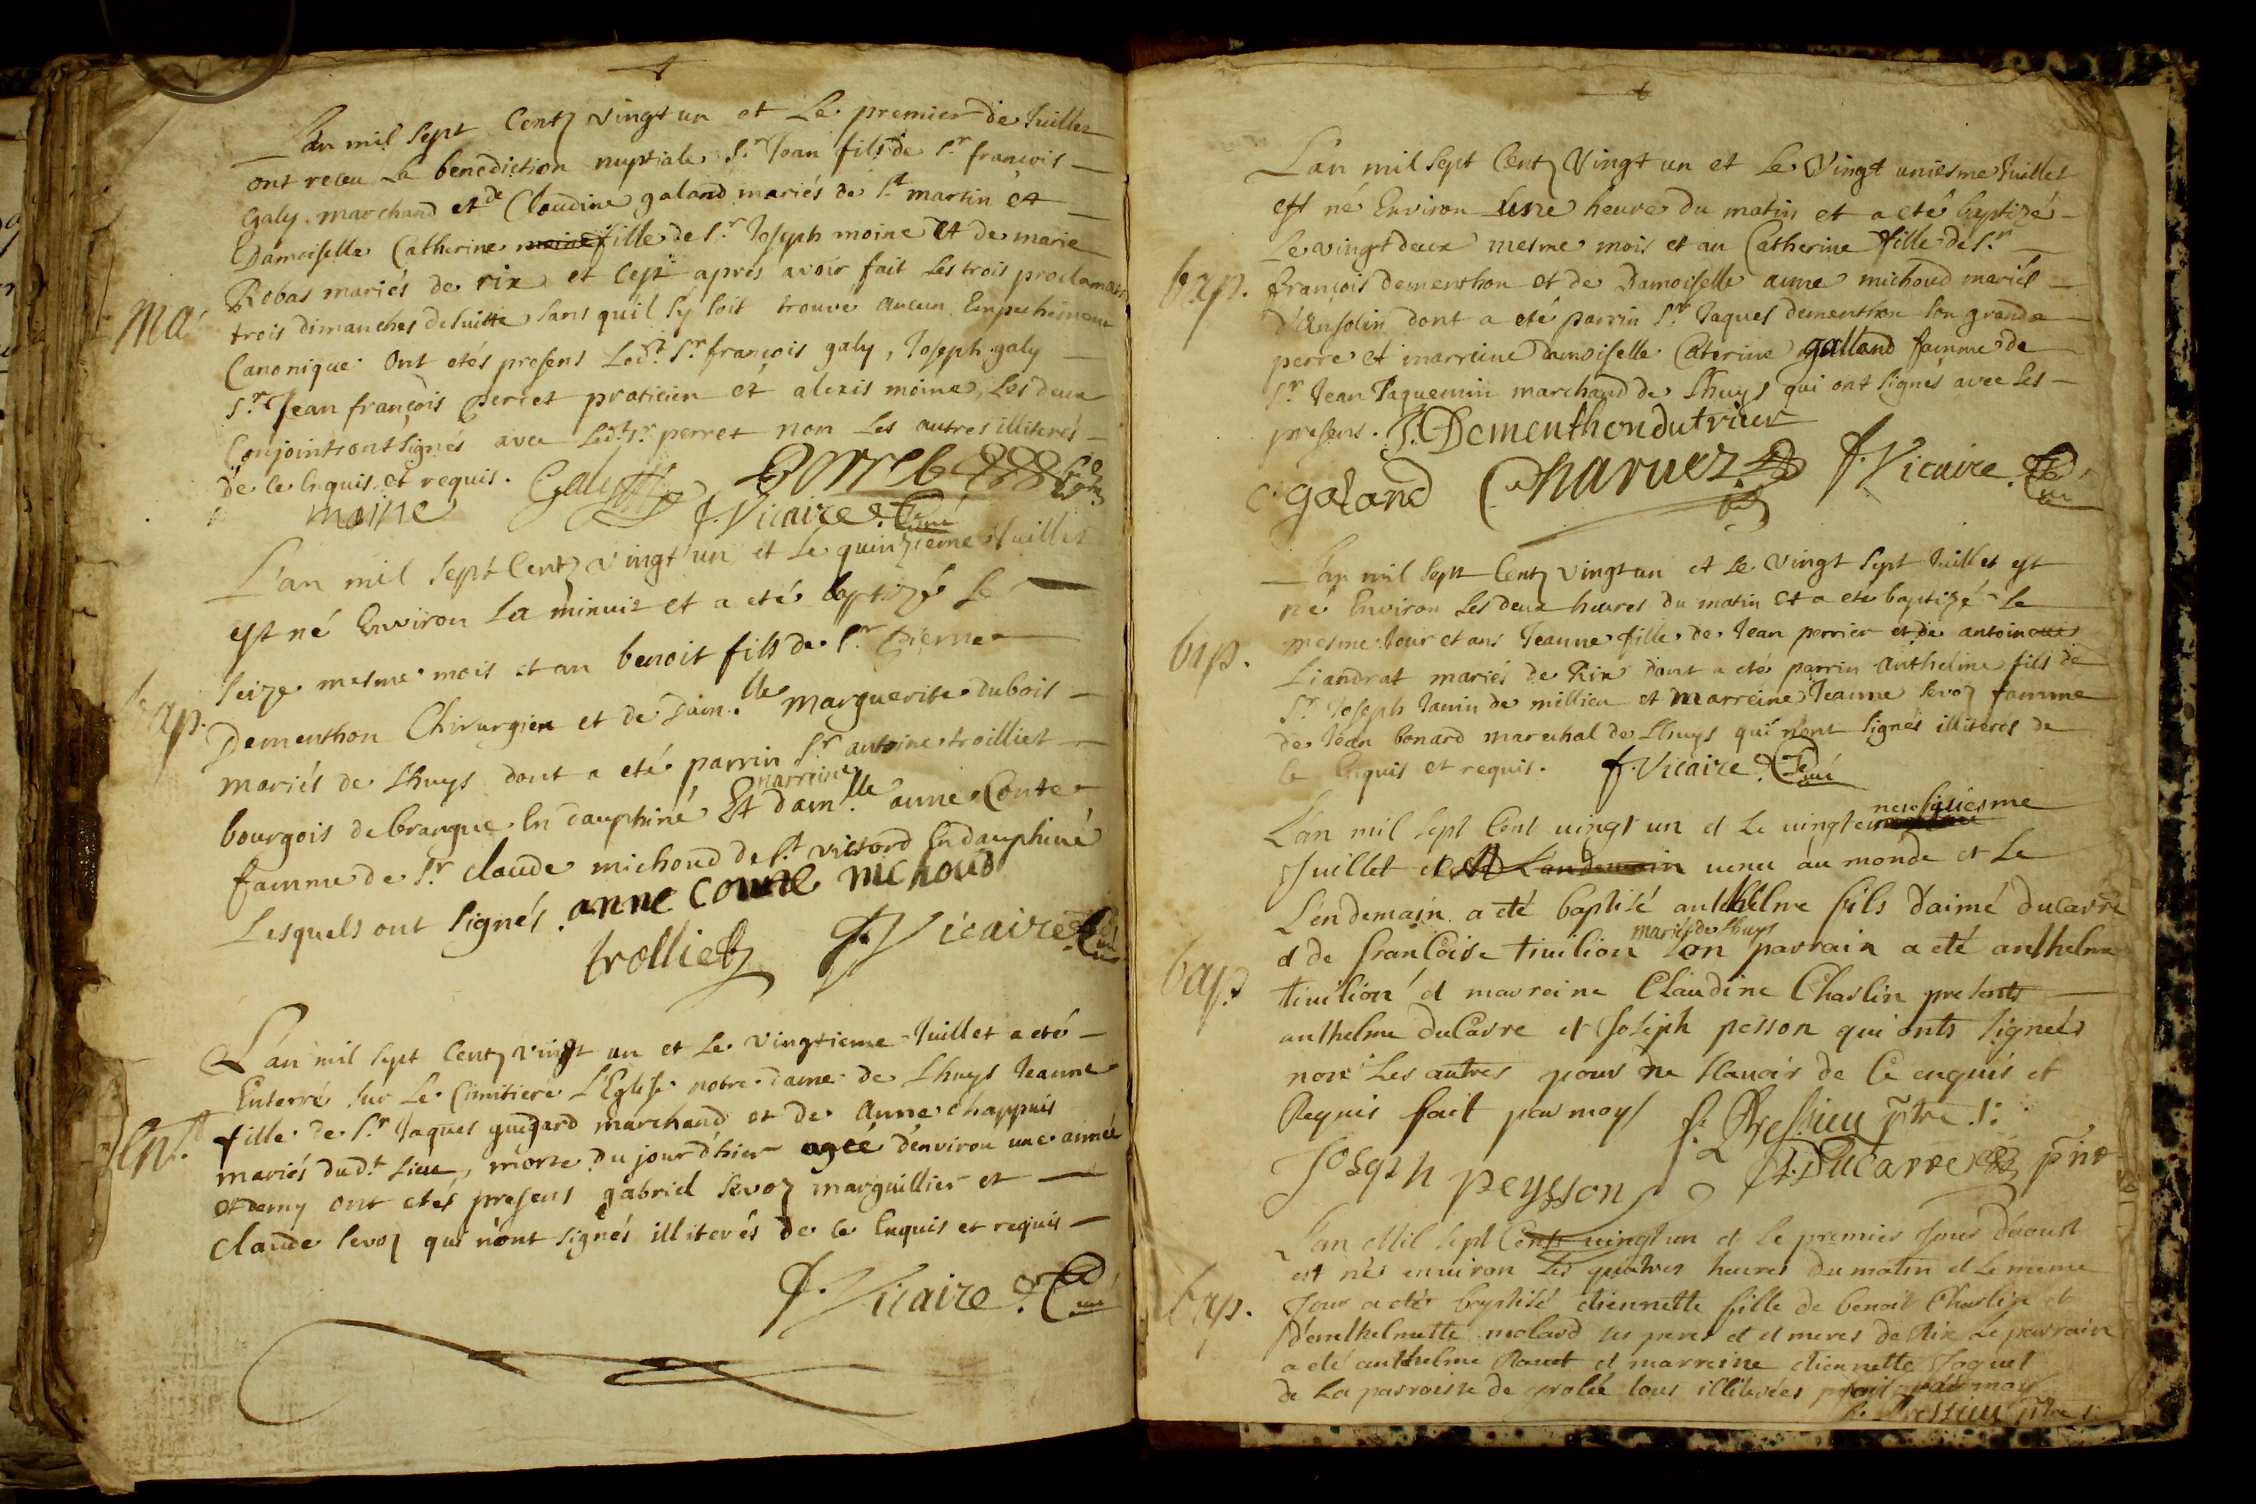 L'an mil sept Centz vingt un et Le premier de Juillet
ont receu La benediction nuptiale Sr Jean fils de Sr francois
Galy marchand et de Claudine galand mariés de St martin et
Damoiselle Catherine fille de Sr Joseph moine et de marie
Robas mariés de rix et après avoir fait Les trois proclamaons
trois dimanches desuitte sans quil sy soit trouvé aucun Empechement
Ma.
Canonique Ont etés presens Ledt Sr françois galy, Joseph galy
Sr Jean françois perret praticien et alexis moine, Les deux
Conjoints ont signés avec Ledt Sr perret non Les autres illiterés
de ce Enquis et requis. Galy Perret
moine f. Vicaire Curé
L'an mil sept Centz vingt un et Le quinzieme Juillet
est né Environ La minuit et a eté baptizé Le
seize mesme mois et an benoit fils de Sr pierre
bap.
Dementhon Chirurgien et de Dam.lle marguerite dubois
mariés de Lhuys dont a eté parrin Sr antoine trolliet
marreine
bourgois de brangue En dauphiné Et dam.lle anne Conte
famme de Sr claude michoud de St victord En dauphiné
Lesquels ont signés. anne conte michoud
trollietz f. Vicaire Curé
L'an mil sept Centz vingt un et Le vingtieme Juillet a eté
Enterré sur Le Cimitiere L'Eglise notre dame de Lhuys Jeanne
fille de Sr Jaques guigard marchand et de Anne chappuis
Ent.
mariés dudt Lieu, morte du jour d'hier agée d'environ une année
et demy ont etés presens gabriel sevoz marguillier et
claude sevoz qui n'ont signés illiterés de ce Enquis et requis
f. Vicaire Curé
L'an mil sept Centz Vingt un et Le Vingt uniesme Juillet
est né Environ Une heure du matin et a eté baptizé
Le vingt deux mesme mois et an Catherine fille de Sr
bap.
françois dementhon et de Damoiselle anne michoud mariés
d'Ansolin dont a eté parrin Sr Jaques dementhon son grand
perre et marreine damoiselle Caterine galland famme de
Sr Jean Jaquemin marchand de Lhuys qui ont signés avec Les
presens. J. Dementhon dutrieur
c galand Charvez f. Vicaire Curé
L'an mil sept Centz vingt un et Le vingt sept Juillet est
né Environ Les deux heures du matin et a eté baptizé Le
mesme Jour et ans Jeanne fille de Jean perrier et de antoine
bap.
Liandrat mariés de Rix dont a eté parrin antheline fils de
Sr Joseph Janin de millieu et marreine Jeanne sevoz famme
de Jean bonard marechal de Lhuys qui n'ont signés illiterés de
ce Enquis et requis. f. Vicaire Curé
L'an mil sept Cent vingt un et Le vingt neufviesme
Juillet et venu au monde et Le
Lendemain a eté baptisé anthelme fils d'aimé ducarre
mariés de Lhuys
et de francoise tivilion son parrain a eté anthelme
bap.
tivilion et marreine Claudine Charlin presents
anthelme duCarre et Joseph peisson qui onts signeés
non Les autres pour ne sCavoir de Ce enquis et
Requis fait par moy f. Pressieu ptre
Joseph peysson A. Ducarre pnt
L'an Mil sept Cents vingt un et Le premier Jour d'aoust
est nés environ Les quatres heures du matin et Le meme
bap.
Jour a eté baptisé etiennette fille de benoit Charlin et
d'enthelmette molard ses peres et et meres de Rix Le parrain
a eté anthelme Ravet et marreine etiennette Joquet
de La parroisse de grolée tous illiterées fait par moy
f. Pressieu ptre